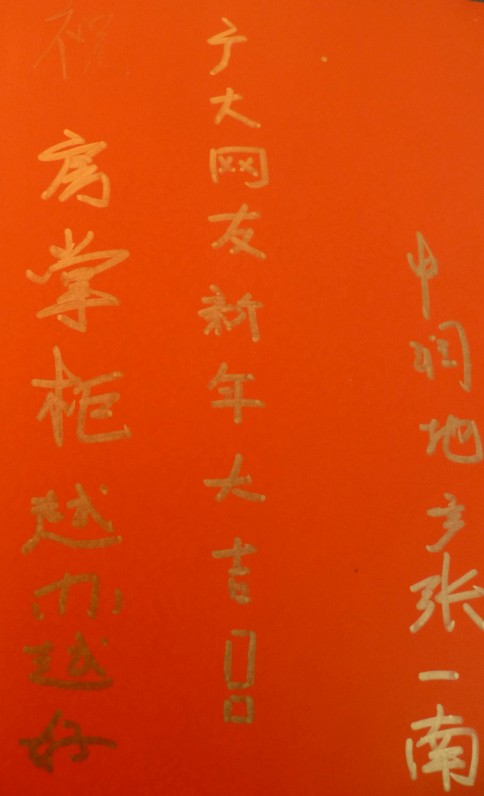 祝房掌柜越办越好
广大网友新年大吉！
中润地产张一南